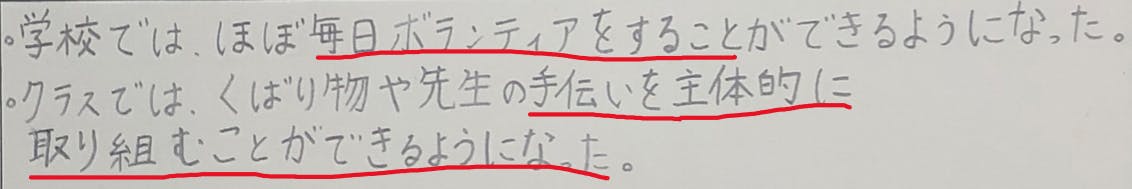 。学校では、ほぼ毎日ボランティアをすることができるようになった。
。クラスでは、くばり物や先生の手伝いを主体的に
取り組むことができるようになった。